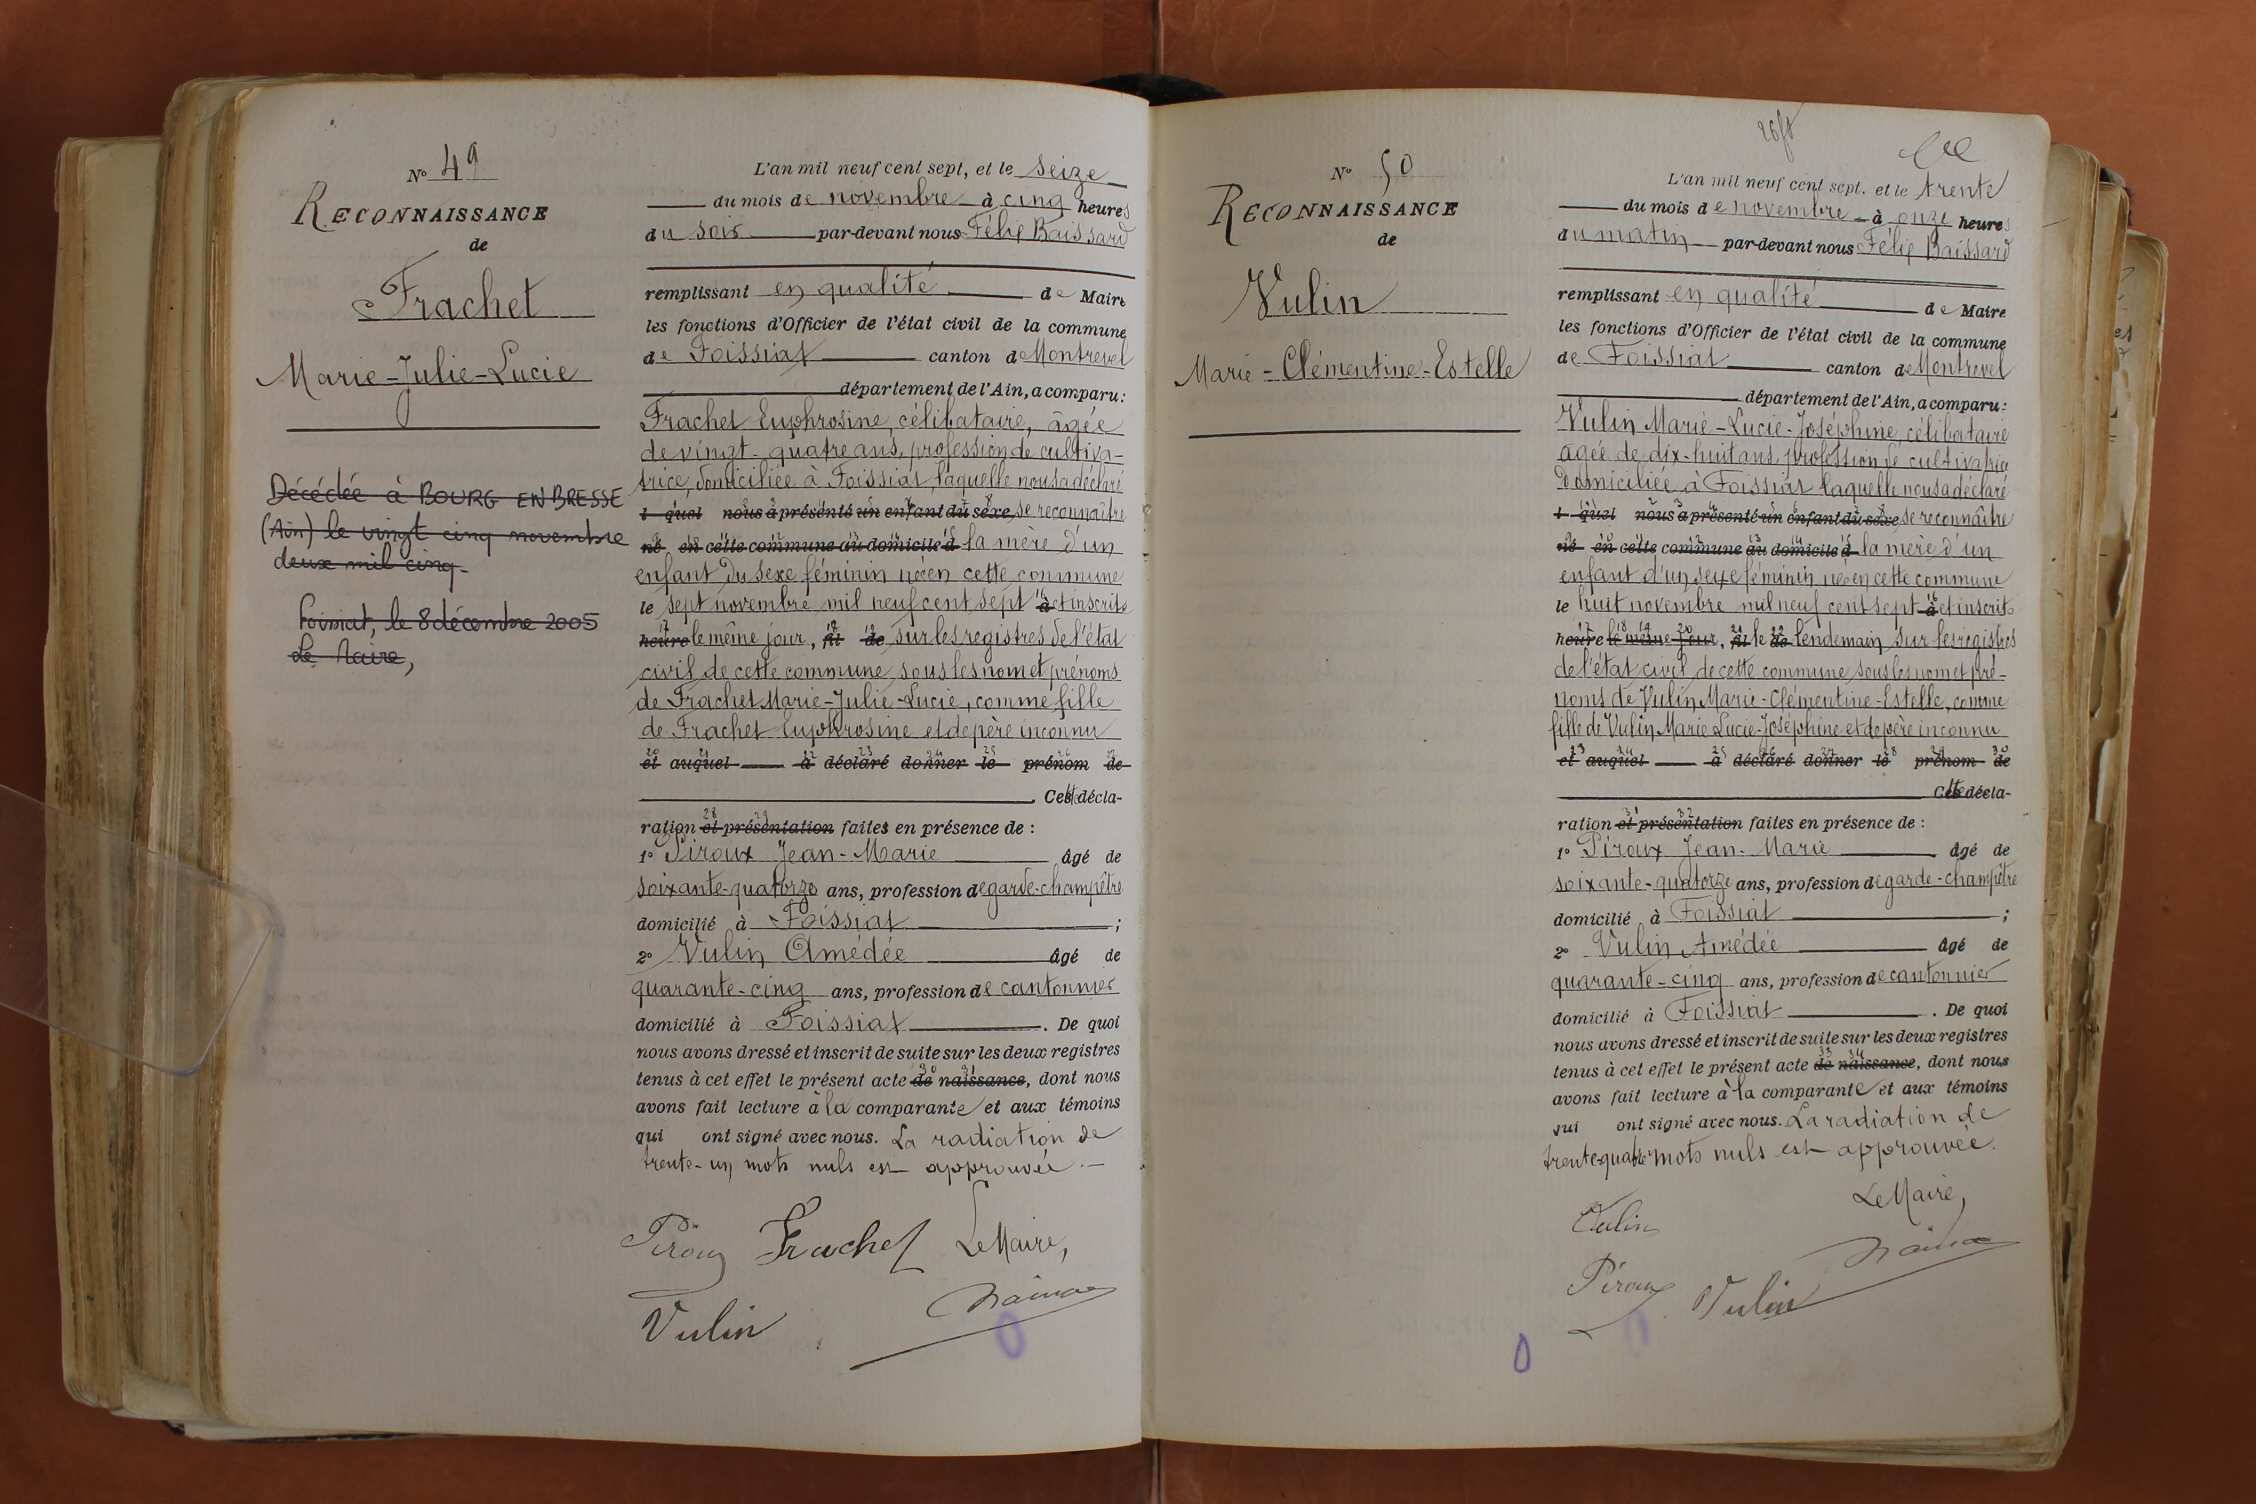 N° 49
RECONNAISSANCE
de
Frachet
Marie-Julie-Lucie
Décédée à BOURG EN BRESSE
(Ain) le vingt cinq novembre
deux mil cinq.
Foissiat, le 8 décembre 2005
Le Maire,
L'an mil neuf cent sept, et le seize
du mois de novembre à cinq heures
du soir par-devant nous Félix Baissard
remplissant en qualité de Maire
les fonctions d'Officier de l'état civil de la commune
de Foissiat canton de Montrevel
département de l'Ain, a comparu:
Frachet Euphrosine, célibataire, âgée
de vingt-quatre ans, profession de cultiva-
trice, domiciliée à Foissiat, laquelle nous a déclaré
l quel nous a présenté un enfant du sexe, se reconnaître
né en cette commune au domicile d la mère d'un
enfant du sexe féminin né en cette commune
le sept novembre mil neuf cent sept à et inscrite
heure le même jour, fil de sur les registres de l'état
civil de cette commune sous les nom et prénoms
de Frachet Marie-Julie-Lucie, comme fille
de Frachet Euphrosine et de père inconnu
et auquel a déclaré donner le prénom de
Cette décla-
ration et présentation faites en présence de :
1° Piroux Jean-Marie âgé de
soixante-quatorze ans, profession de garde-champêtre
domicilié à Foissiat ;
2° Vulin Amédée âgé de
quarante-cinq ans, profession de cantonnier
domicilié à Foissiat . De quoi
nous avons dressé et inscrit de suite sur les deux registres
tenus à cet effet le présent acte de naissance, dont nous
avons fait lecture à la comparante et aux témoins
qui ont signé avec nous. La radiation de
trente-un mots nuls est approuvée.
Piroux Frachet Le Maire,
Vulin
N° 50
RECONNAISSANCE
de
Vulin
Marie-Clémentine-Estelle
L'an mil neuf cent sept. et le trente
du mois de novembre à onze heures
du matin par-devant nous Félix Baissard
remplissant en qualité de Maire
les fonctions d'Officier de l'état civil de la commune
de Foissiat canton de Montrevel
département de l'Ain, a comparu:
Vulin Marie-Lucie-Joséphine, célibataire
âgée de dix-huit ans, profession de cultivatrice
domiciliée à Foissiat laquelle nous a déclaré
l quel nous a présenté un enfant du sexe se reconnaître
né en cette commune au domicile d la mère d'un
enfant d'un sexe féminin née en cette commune
le huit novembre mil neuf cent sept à et inscrite
heure le même jour, fil le de lendemain, sur les registres
de l'état civil de cette commune sous les nom et pré-
noms de Vulin Marie-Clémentine-Estelle, comme
fille de Vulin Marie Lucie-Joséphine et de père inconnu
et auquel a déclaré donner le prénom de
Cette décla-
ration et présentation faites en présence de :
1° Piroux Jean-Marie âgé de
soixante-quatorze ans, profession de garde-champêtre
domicilié à Foissiat ;
2° Vulin Amédée âgé de
quarante-cinq ans, profession de cantonnier
domicilié à Foissiat . De quoi
nous avons dressé et inscrit de suite sur les deux registres
tenus à cet effet le présent acte de naissance, dont nous
avons fait lecture à la comparante et aux témoins
qui ont signé avec nous. La radiation de
trente-quatre mots nuls est approuvée.
Le Maire,
Vulin
Piroux Vulin